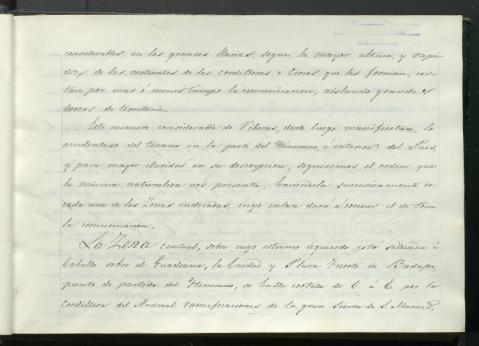 considerables en las grandes lluvias, segun la mayor altura, y rapi-
déz de las vertientes de las cordilleras ó cerros que las forman, cor-
tan por mas ó menos tiempo la comunicacion, aislando grandes
trozos de territorio.
Este numero considerable de Riberas, desde luego manifiestan, lo
accidentado del terreno en la parte del Itinerario, é interior del Pais,
y para mayor claridad en su descripcion, seguiremos el orden que
la misma naturaleza nos presenta, haciendola sucesivamente en
cada una de las Zonas indicadas, cuyo enlace dará á conocer el de toda
la comunicacion.
La Zona central, sobre cuyo estremo izquierdo está situada á
Caballo sobre el Guadiana, la Ciudad y Plaza Fuerte de Badajoz,
punto de partida del Itinerario, se halla cortada de E. á O. por la
cordillera del ramificaciones de la gran Sierra de S. Mamed,